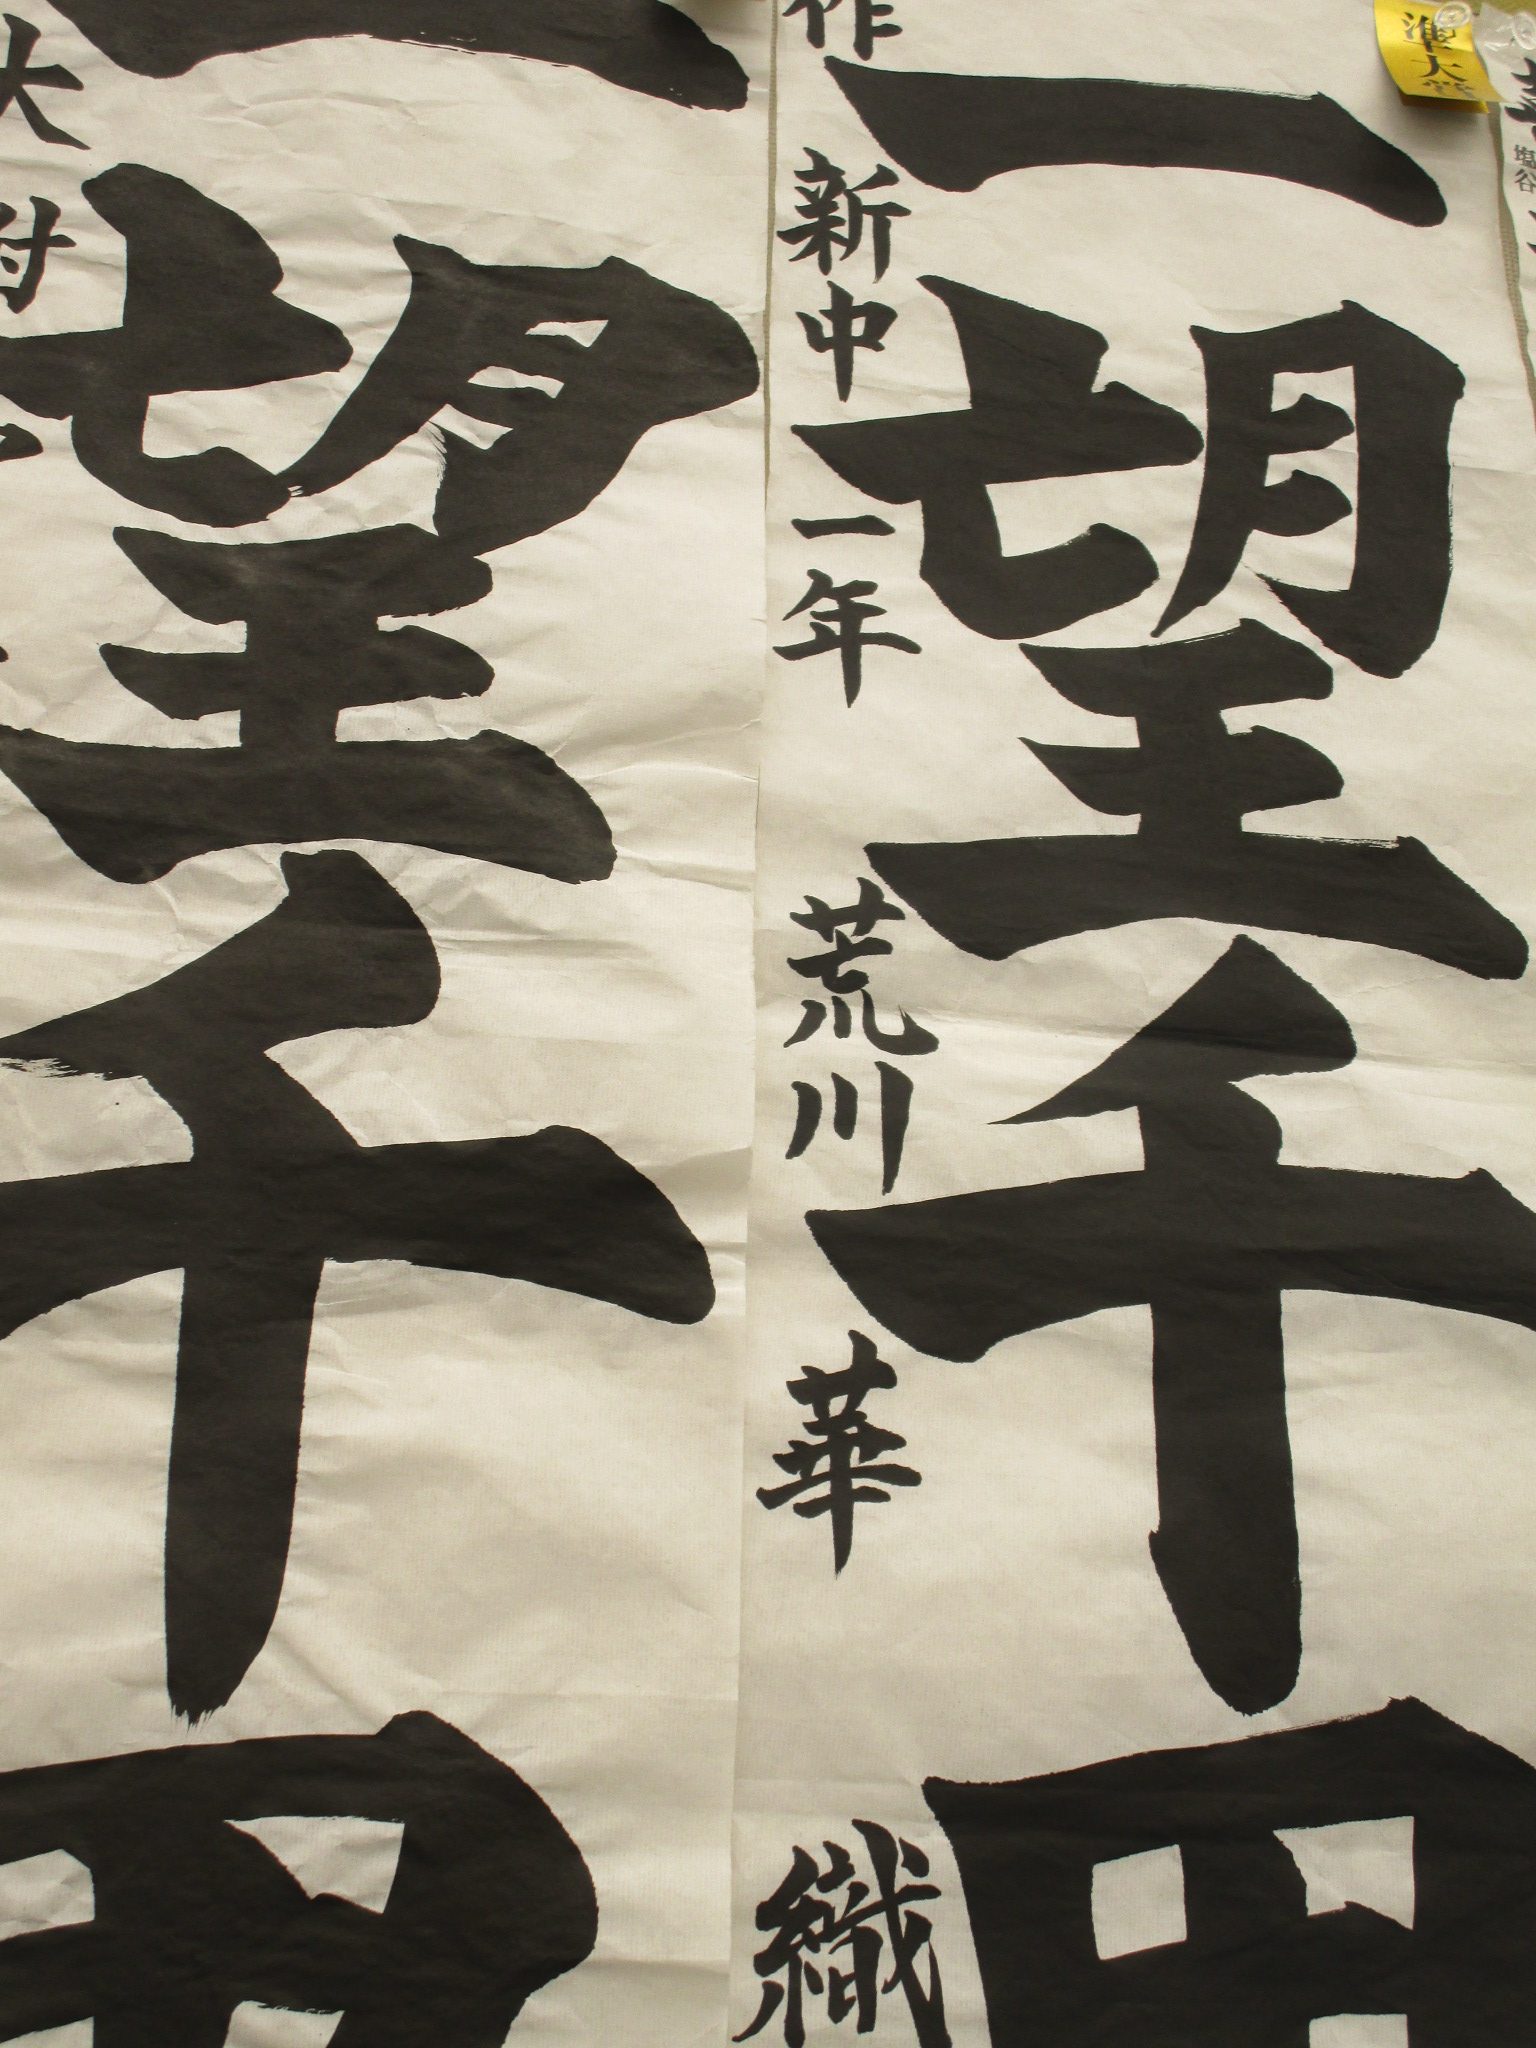 準大賞
塩谷
一望千田
作新中一年 荒川華織
一望千田
大付